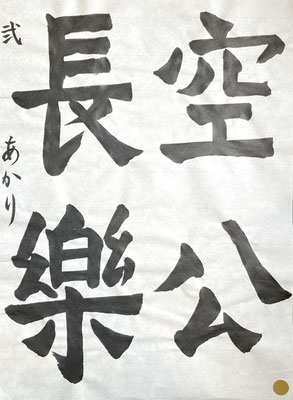 空公
長樂
弐 あかり